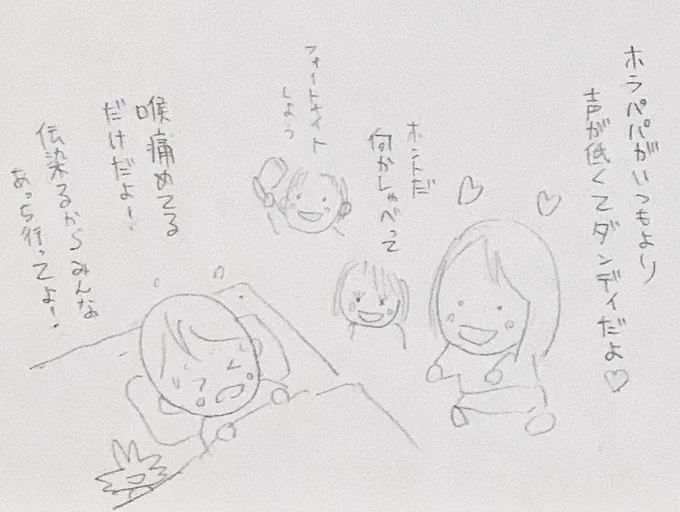 ホラパパがいつもより
声が低くてダンディだよ♡
ホントだ
何かしゃべって
フォートナイト
しよう
喉痛めてる
だけだよ！
伝染るからみんな
あっち行ってよー！